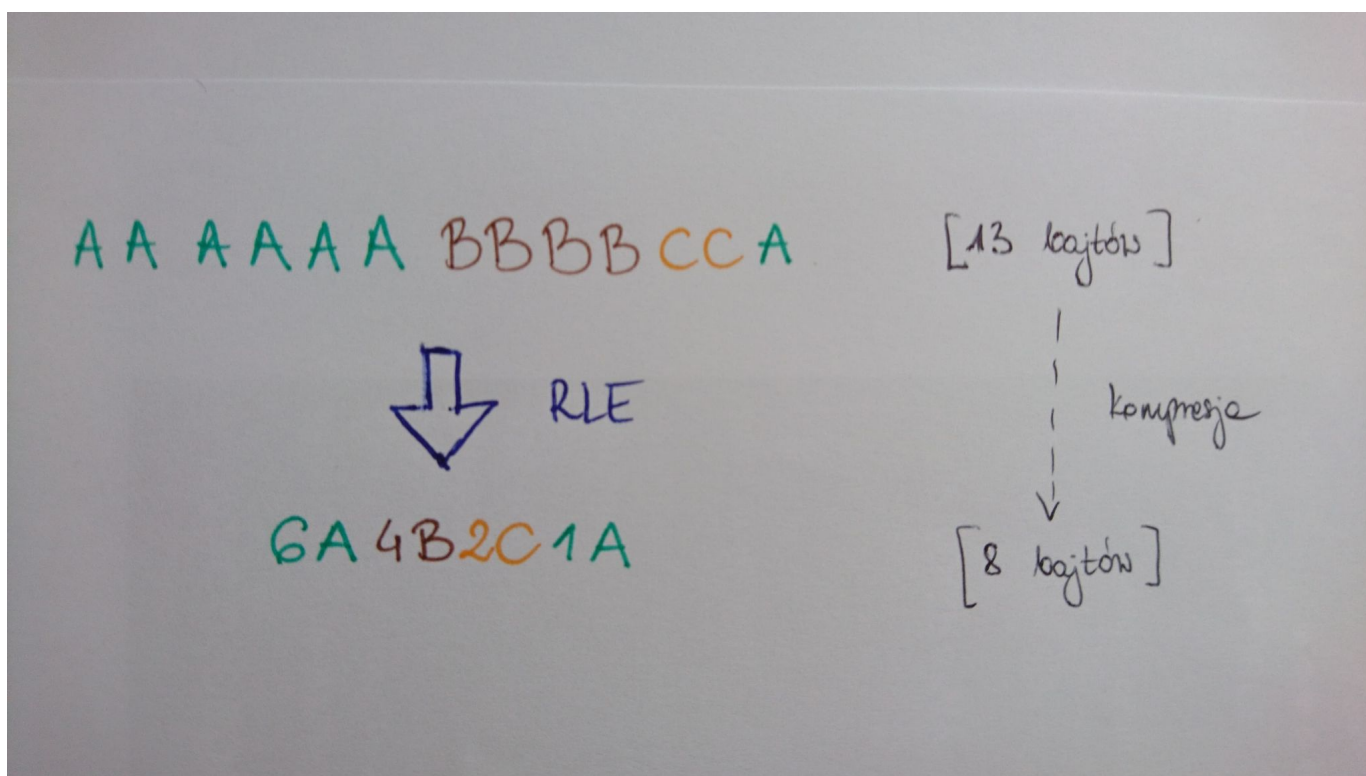 AA AAAA BBBB CCA [13 bajtów]
RLE kompresja
6A 4B2C1A [8 bajtów]